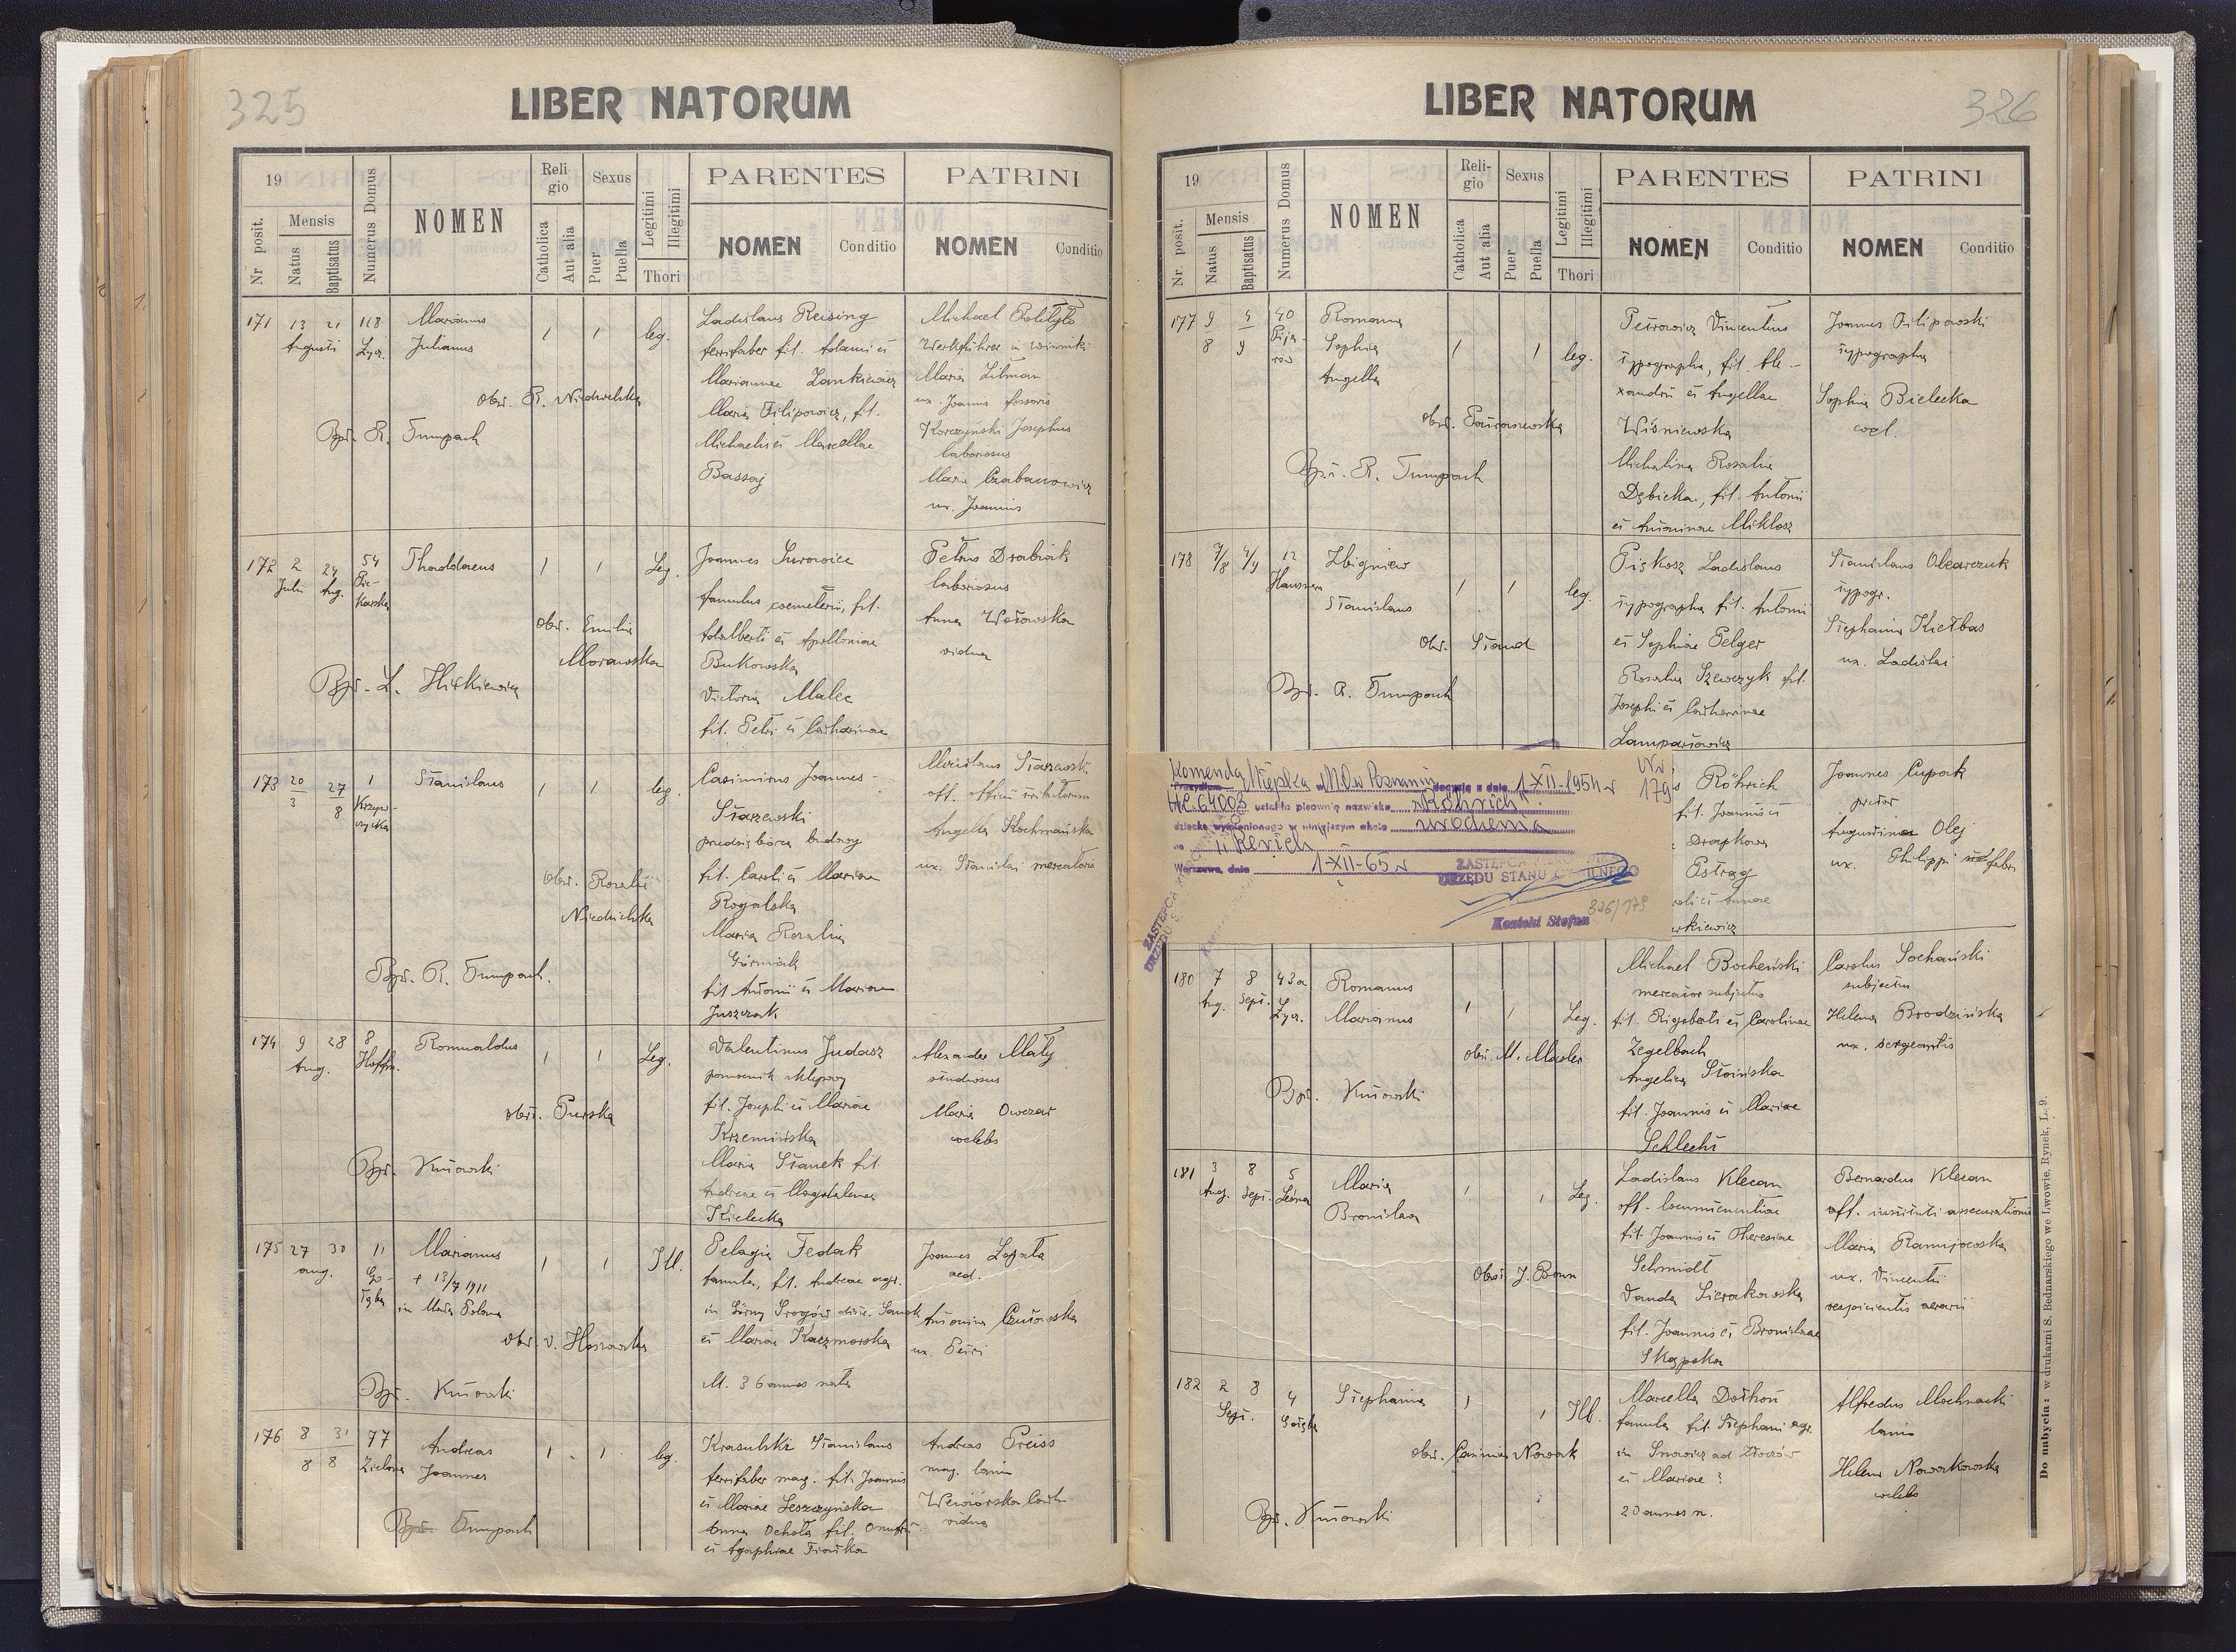 325
LIBER NATORUM
19
Mensis
Nr. posit.
Natus
Baptisatus
Numerus Domus
NOMEN
Religio
Catholica
Aut alia
Sexus
Puer
Puella
Legitimi
Illegitimi
Thori
PARENTES
NOMEN
Conditio
PATRINI
NOMEN
Conditio
171 13 21 118
Augusti
Marianus
Julianus
1 1 leg.
Ladislaus Reising
ferrifaber fil. Adami et
Mariannae Zankiewicz
Maria Filipowicz, fil.
Michaelis et Marcellae
Bassaj
Michael
Werkführer in Winniki
Maria Litman
ux. Joannis fossoris
Korczyński Josephus
laboriosus
Maria Czabanowicz
ux. Joannis
Obst. R. Niedzielska
Bpt. R. Tumpach
172 2 24 54
Julii Aug. Pie-
karska
Thaddaeus
1 1 Leg.
Joannes Surowiec
famulus coemeterii, fil.
Adalberti et Apolloniae
Bukowska
Victoria Malec
fil. Petri et Catharinae
Petrus Drabiak
laboriosus
Anna Wotowska
vidua
Obst. Emilia
Morawska
Bpt. L. Hirkiewicz
173 20/3 27/8 1
Stanislaus
1 1 leg.
Casimirus Joannes
Starzewski
przedsiębiorca budowy
fil. Caroli et Mariae
Rogalska
Maria Rosalia
Górniak
fil Antonii et Mariae
Juszczak
off. officii tributorum
Angela Kochmańska
ux. Stanislai mercatoris
Obst. Rosalia
Niedzielska
Bpt. R. Tumpach.
174 9 28 8
Aug. Hoffm.
Romualdus
1 1 Leg.
Valentinus Judasz
pomocnik sklepowy
fil. Josephi et Mariae
Krzemińska
Maria Stanek fil.
Andreae et Magdalenae
Kielecka
Alexander Mały
studiosus
Maria Owczar
coelebs
obst. Purska
Bpt. Kutowski
175 27 30 11
aug.
Marianus
+ 13/7 1911
1 1 Ill.
Pelagia Fedak
famula, fil. Andreae agr.
in Górny Srogów distr. Sanok
et Mariae Kaczmarska
M. 36 annos nata
Joannes Łopata
aed.
Antonina Czutowska
ux. Petri
Bpt. Kutowski
176 8 31 77
8 8 Zielona
Andreas
Joannes
1 1 leg.
Krasulski Stanislaus
ferrifaber mag. fil. Joannis
et Mariae Leszczyńska
Anna Ochota fil. Onufrii
et Agaphiae Fiałka
Andreas Preiss
mag. lanio
Wewiórska Cath
vidua
Bpt. Tumpach
326
LIBER NATORUM
19
Mensis
Nr. posit.
Natus
Baptisatus
Numerus Domus
NOMEN
Religio
Catholica
Aut alia
Sexus
Puer
Puella
Legitimi
Illegitimi
Thori
PARENTES
NOMEN
Conditio
PATRINI
NOMEN
Conditio
177 9/8 4/9 40
Pija-
rów
Romana
Sophia
Angella
1 1 leg.
Petrowicz Vincentius
typographus, fil. Ale-
xandri et Angellae
Wiśniewska
Michalina Rosalia
Dębicka, fil. Antonii
et Antoninae Miklosz
Joannes Filipowski
typographus
Sophia Bielecka
coel.
Bpt. R. Tumpach
178 7/8 4/9 12
Hausnera
Zbigniew
Stanislaus
1 1 leg.
Piskosz Ladislaus
typographus fil. Antonii
et Sophiae Pelger
Rosalia Szewczyk fil.
Josephi et Catharinae
Lampartowicz
Stanislaus Olearczuk
typogr.
Stephania Kiełbas
ux. Ladislai
Obst. Stand
Bpt. R. Tumpach
Komenda Miejska M.O. w Poznaniu decyzją z dnia 1-XII-1954 r Nr.
HC. 64003 ustaliło pisownię nazwiska „Röhrich" 179
dziecka wymienionego w niniejszym akcie urodzenia
na „Rerich"
Warszawa, dnia 1-XII-65 r
ZASTĘPCA
URZĘDU STANU CYWILNEGO
326/179
Kostski Stefan
Röhrich
fil. Joannis et
Drapkowa
Postrąg
Joannes Cupak
pictor
Augustina Olej
ux. Philippi fabri
180 7 8 43a
Aug. Sept. Łycz.
Romanus
Marianus
1 1 Leg.
Michael Bocheński
mercator subjectus
fil. Rigoberti et Carolinae
Zegelbach
Angelica Stoińska
fil. Joannis et Mariae
Schlecht
Carolus Sochański
subjectus
Helena Brodzińska
ux. sergeantis
Obst. M. Masler
Bpt. Kutowski
181 3 8 5
Aug. Sept. Leśna
Maria
Bronislava
1 1 Leg.
Ladislaus Klecan
off. locumtenentiae
fil. Joannis et Theresiae
Schmidt
Vanda Sierakowska
fil. Joannis et Bronislavae
Skąpska
Bernardus Klecan
off. instituti assecurationis
Maria
ux. Vincentii
respicientis aerarii
Obst. J. Bonn
182 2 8 4
Sept.
Stephania
1 1 Ill.
Marcella Dothoń
famula fil. Stephani agr.
in Snowicz ad Złoczów
et Mariae ?
20 annos n.
Alfredus Mochnacki
lanio
Helena Nowakowska
coelebs
obst. Casimira Nowak
Bpt. Kutowski
Do nabycia: w drukarni S. Bednarskiego we Lwowie, Rynek, L. 9.